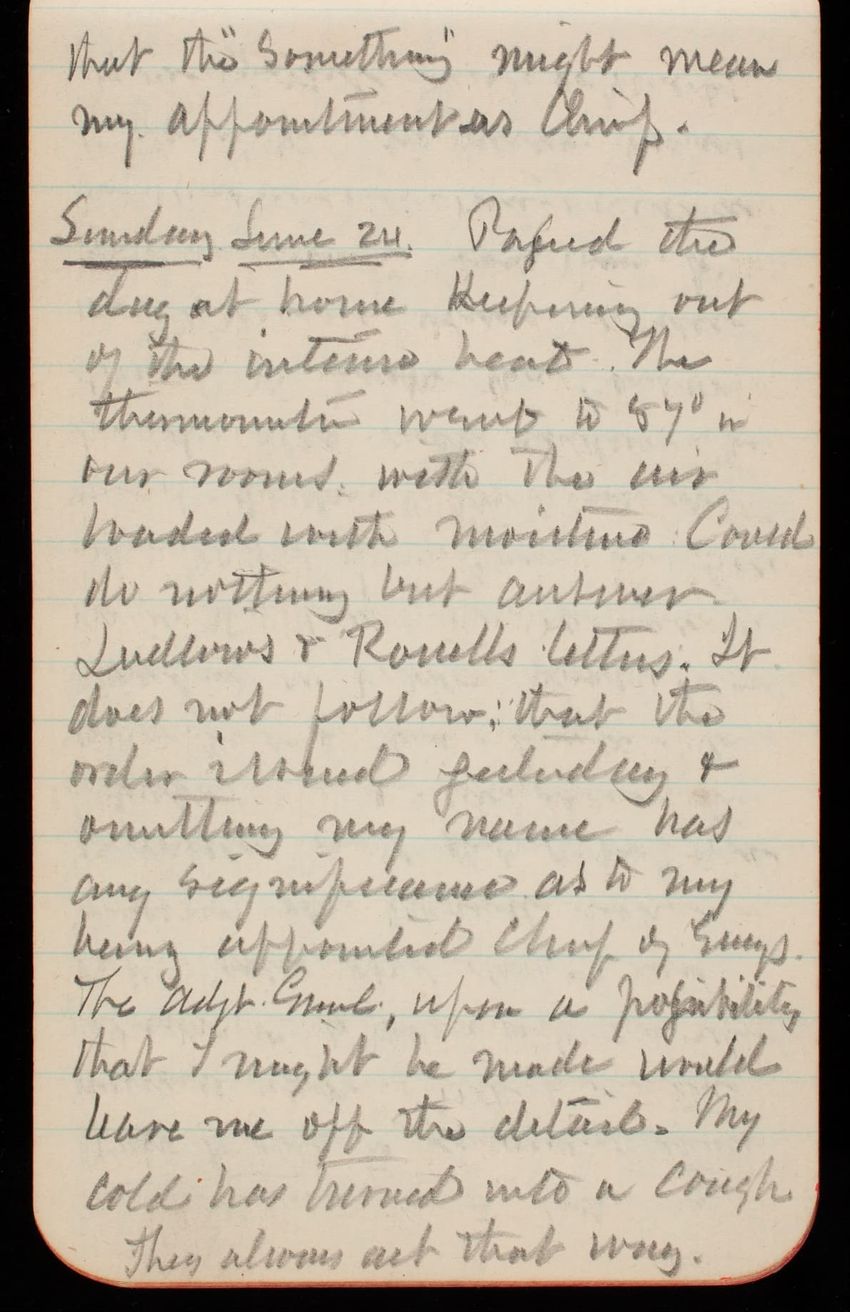 that the "Something" might mean
my appointment as Chief.
Sunday June 24. Passed the
day at home Keeping out
of the intense heat. The
thermometer went to 87° in
our rooms. with the air
loaded with moisture Could
do nothing but answer
Ludlows & Rowells letters. It
does not follow; that the
order issued yesterday &
omitting my name has
any significance as to my
being appointed Chief of Engrs.
The Adjt. Genl., upon a possibility
that I might be made would
leave me off the detail. My
cold has turned into a cough
They always act that way.